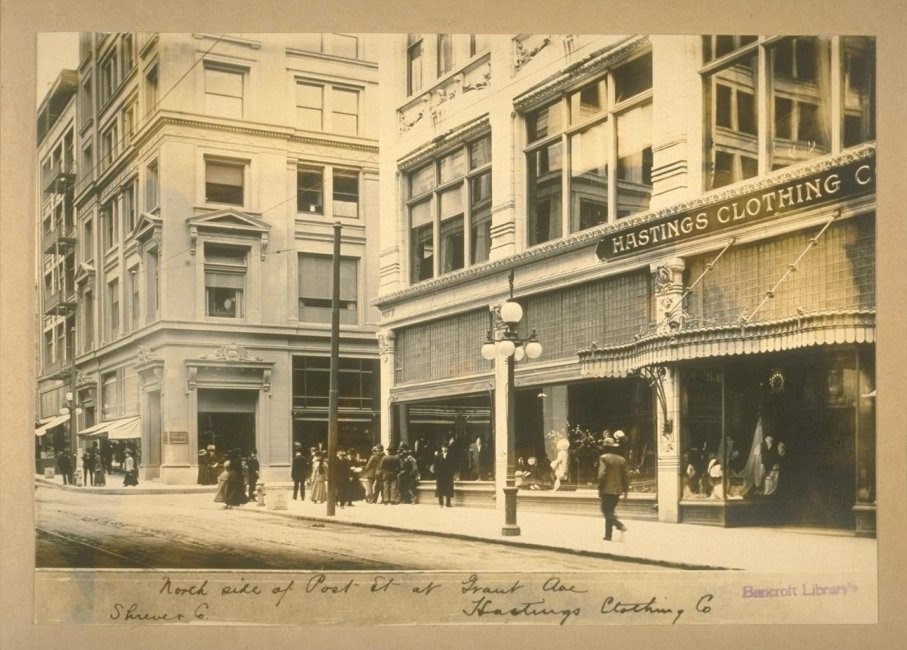 HASTINGS CLOTHING C
North side of Post St at Grant Ave
Shreve & Co.
Hastings Clothing Co
Bancroft Library